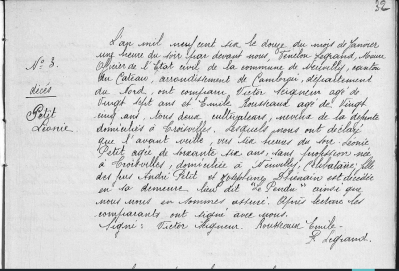 32
L'an mil neuf cent six le douze du mois de Janvier
une heure du soir par devant nous, Legrand, Maire
Officier de l'Etat civil de la commune de Neuvilly, canton
du Cateau, arrondissement de Cambrai, département
du Nord, ont comparu Victor Seigneur agé de
vingt sept ans et Emile Rousseaux agé de vingt
un ans, tous deux cultivateurs, neveux de la défunte
domiciliés à Troisvilles. Lesquels nous ont déclaré
que l'avant veille, vers six heures du soir Léonie
Petit agée de soixante six ans, sans profession née
à Troisvilles, domiciliée à Neuvilly, Célibataire, fille
des feus André Petit et Joséphine est décédée
en sa demeure lieu dit "Le Pendu" ainsi que
nous nous en sommes assuré. Après lecture les
comparants ont signé avec nous.
Signé: Victor Seigneur. Rousseaux Emile.
F. Legrand.
N° 3.
décès
Petit
Léonie